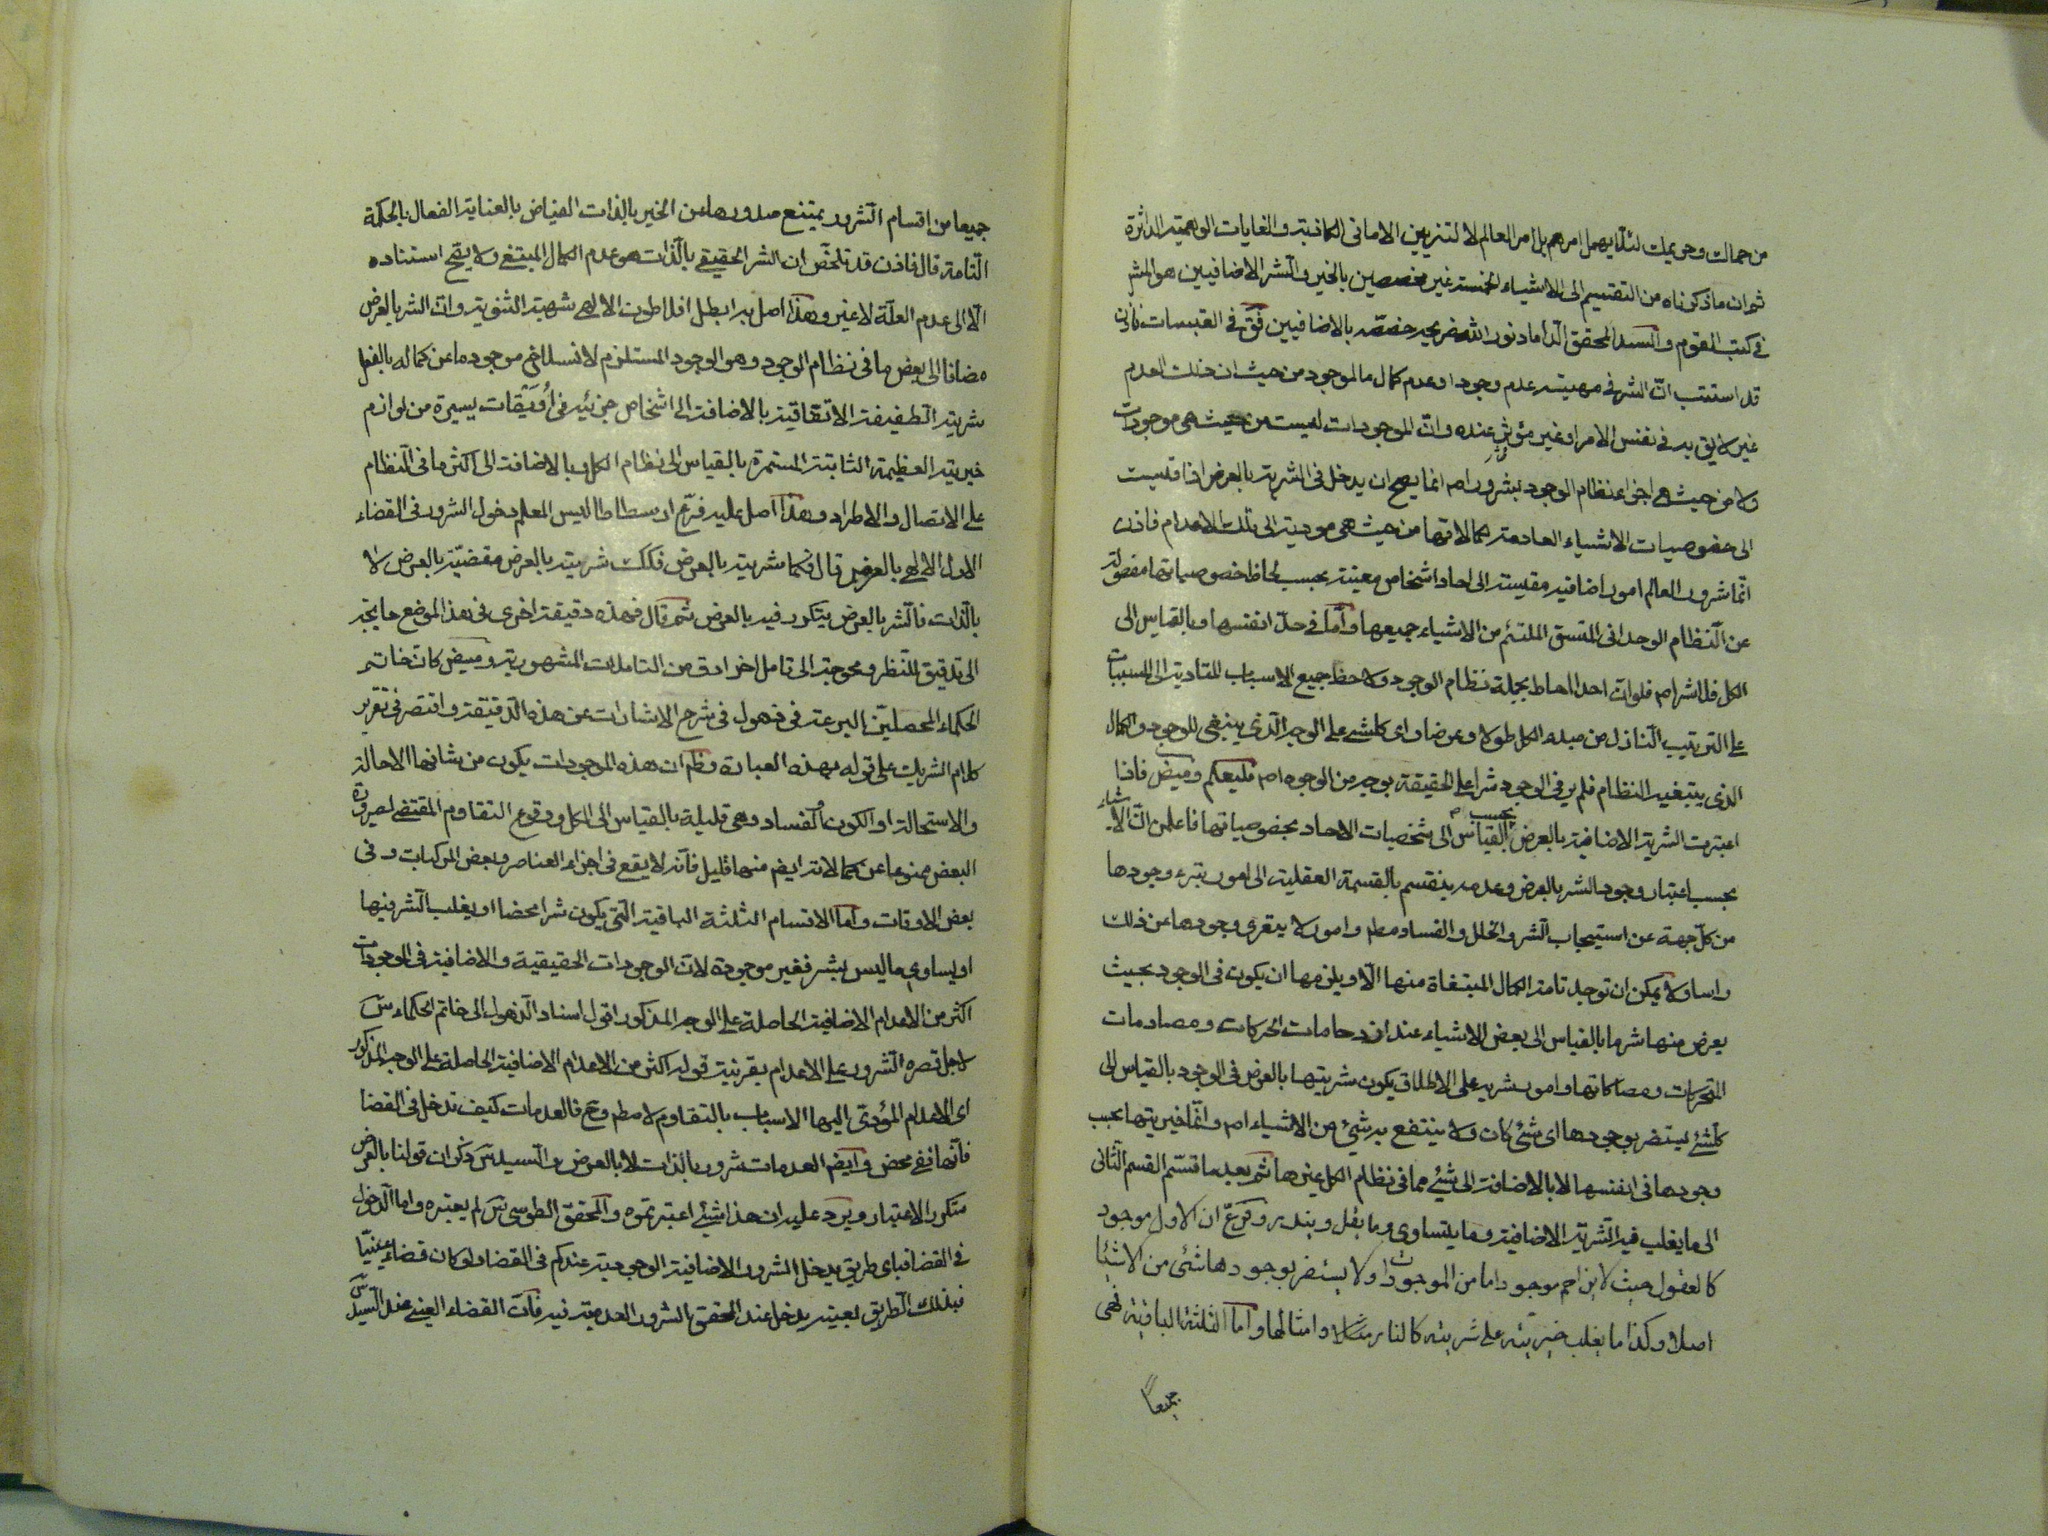 من جمالك وحريمك لئلا يهمل امرهم بل امر العالم لا لتزيين الامانى الكاذبة والغايات الوهمية الداثرة
ثم ان ما ذكرناه من التقسيم الى الاشياء الخمسة غير مخصصين بالخير والشر الاضافيين هو المشهور
فى كتب القوم والسيد المحقق الداماد نور الله ضريحه خصصه بالاضافيين فق فى القبسات فاذن
قد استتب ان الشر فى مهيته عدم وجود او عدم كمال ما لموجود من حيث ان ذلك العدم
غير لايق به فى نفس الامر او غير مؤثر عنده وان الموجودات ليست من حيث هى موجودات
ولا من حيث هى اجزاء نظام الوجود بشرور اصم انما يصح ان يدخل فى الشرية بالعرض اذا قيست
الى خصوصيات الاشياء العادمة كمالاتها من حيث هى مودية الى تلك الاعدام فاذن
انما شرور العالم امور اضافية مقيسة الى احاد اشخاص معينة بحسب لحاظ خصوصياتها مفصولة
عن النظام الوحدانى المتسق الملتئم من الاشياء جميعها واما فى حد انفسها وبالقياس الى
الكل فلا شر اصم فلو ان احدا احاط بجملة نظام الوجود ولاحظ جميع الاسباب المتادية الى المسببات
على الترتيب النازل من مبدء الكل طولا وعرضا واى كل شئ على الوجه الذى ينبغى للوجود والكمال
الذى يبتغيه النظام فلم ير فى الوجود شرا على الحقيقة بوجه من الوجوه اصم فليعلم وميض فاذا
اعتبرت الشرية الاضافية بالعرض بحسب القياس الى شخصيات الاحاد بخصوصياتها فاعلمن ان الاشياء
بحسب اعتبار وجود الشر بالعرض وعدمه ينقسم بالقسمة العقلية الى امور يتبرء وجودها
من كل جهة عن استيجاب الشر والخلل والفساد مطم وامور لا يتعرى وجودها عن ذلك
راسا ولا يمكن ان توجد تامة الكمال المبتغاة منها الا ويلزمها ان يكون فى الوجود بحيث
يعرض منها شر ما بالقياس الى بعض الاشياء عند ازدحامات الحركات ومصادمات
المتحركات ومصاكاتها وامور شرية على الاطلاق يكون شريتها بالعرض فى الوجود بالقياس الى
كل شئ يستضر بوجودها اى شئ كان ولا ينتفع به شئ من الاشياء اصم وانما خيريتها بحسب
وجودها فى انفسها لا بالاضافة الى شئ مما فى نظام الكل غيرها ثم بعد ما قسم القسم الثانى
الى ما يغلب فيه الشرية الاضافية وما يتساوى وما يقل ويندر وفرع ان الاول موجود
كالعقول حيث لا يزاحم موجودا ما من الموجودات ولا يستضر بوجودها شئ من الاشيا
اصلا وكذا ما يغلب خيريته على شريته كالنار مثلا وامثالها واما الثلثة الباقية فهى
جميعا
جميعا من اقسام الشرور يمتنع صدورها عن الخير بالذات الفياض بالعناية الفعال بالحكمة
التامة قال فاذن قد تلخص ان الشر الحقيقى بالذات هو عدم الكمال المبتغى ولا يصح استناده
الا الى عدم العلة لا غير وهذا اصل به ابطل افلاطون الالهى شبهة الثنوية وان الشر بالعرض
مضافا الى بعض ما فى نظام الوجود وهو الوجود المستلزم لانسلاخ موجود ما عن كماله بالفعل
شرية الطفيفة الاتفاقية بالاضافة الى اشخاص جزئية فى اُويقات يسيرة من لوازم
خيريته العظيمة الثابتة المستمرة بالقياس الى نظام الكل وبالاضافة الى اكثر ما فى النظام
على الاتصال والاطراد وهذا اصل عليه فرع ارسطاطاليس المعلم دخول الشرور فى القضاء
الاول الالهى بالعرض قال فكما شرية بالعرض فكك شرية بالعرض مقضية بالعرض لا
بالذات فالشر بالعرض يتكرر فيه بالعرض ثم قال فهذه دقيقة اخرى فى هذا الموضع حايجة
الى تدقيق للنظر ومحوجة الى تامل اخر ادق من التاملات المشهورية وميض كان خاتم
الحكماء المحصلين البرعة فى ذهول فى شرح الاشارات عن هذه الدقيقة واقتصر فى تقرير
كلام الشريك على قوله بهذه العبارة وظم ان هذه الموجودات يكون من شانها الاحالة
والاستحالة او الكون والفساد وهى قليلة بالقياس الى الكل ووقوع التقاوم المقتضى لصيرورة
البعض ممنوعا عن كمالاته ايضم منها قليل فانه لا يقع فى اجزاء العناصر وبعض المركبات وفى
بعض الاوقات واما الاقسام الثلثة الباقية التى يكون شرا محضا او يغلب الشر فيها
او يساوى ما ليس بشر فغير موجودة لان الوجودات الحقيقية والاضافية فى الوجودات
اكثر من الاعدام الاضافية الحاصلة على الوجه المذكور اقول اسناد الذهول الى خاتم الحكماء س
لاجل قصره الشرور على الاعدام بقرينة قوله اكثر من الاعدام الاضافية الحاصلة على الوجه المذكور
اى الاعدام المؤدى اليها الاسباب بالتقاوم لا مطم وح فالعدمات كيف تدخل فى القضا
فانها نفى محض وايضم العدمات شرور بالذات لا بالعرض والسيد س ذكر ان قولنا بالعرض
متكرر الاعتبار ويرد عليه ان هذا شئ اعتبرتموه والمحقق الطوسى س لم يعتبره واما الدخول
فى القضا فباى طريق يدخل الشرور الاضافية الوجودية عندكم فى القضا ولو كان قضاء عينيا
فبذلك الطريق بعينه يدخل عند المحقق الشرور العدمية فيه فان القضاء العينى عند السيد س